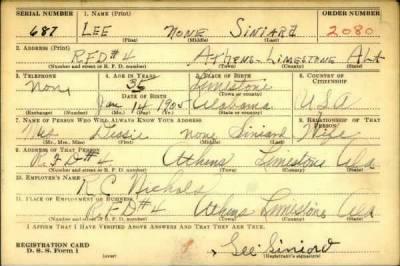 SERIAL NUMBER 1. NAME (Print) ORDER NUMBER
687 LEE NONE SINIARD 2080
(First) (Middle) (Last)
2. ADDRESS (Print)
R.F.D #4 ATHENS LIMESTONE ALA
(Number and street or R. F. D. number) (Town) (County) (State)
3. TELEPHONE 4. AGE IN YEARS 5. PLACE OF BIRTH 6. COUNTRY OF CITIZENSHIP
None 35 Limestone
DATE OF BIRTH (Town or county)
Jan 14 1905 Alabama USA
(Mo.) (Day) (Yr.) (State or country)
7. NAME OF PERSON WHO WILL ALWAYS KNOW YOUR ADDRESS 8. RELATIONSHIP OF THAT PERSON
Mrs none Siniard Wife
(Mr., Mrs., Miss) (First) (Middle) (Last)
9. ADDRESS OF THAT PERSON
R.F.D #4 Athens Limestone Ala
(Number and street or R. F. D. number) (Town) (County) (State)
10. EMPLOYER'S NAME
R.C. Nichols
11. PLACE OF EMPLOYMENT OR BUSINESS
R.F.D #4 Athens Limestone Ala
(Number and street or R. F. D. number) (Town) (County) (State)
I AFFIRM THAT I HAVE VERIFIED ABOVE ANSWERS AND THAT THEY ARE TRUE.
REGISTRATION CARD
D. S. S. Form 1 (over) Lee Siniard
(Registrant's signature)